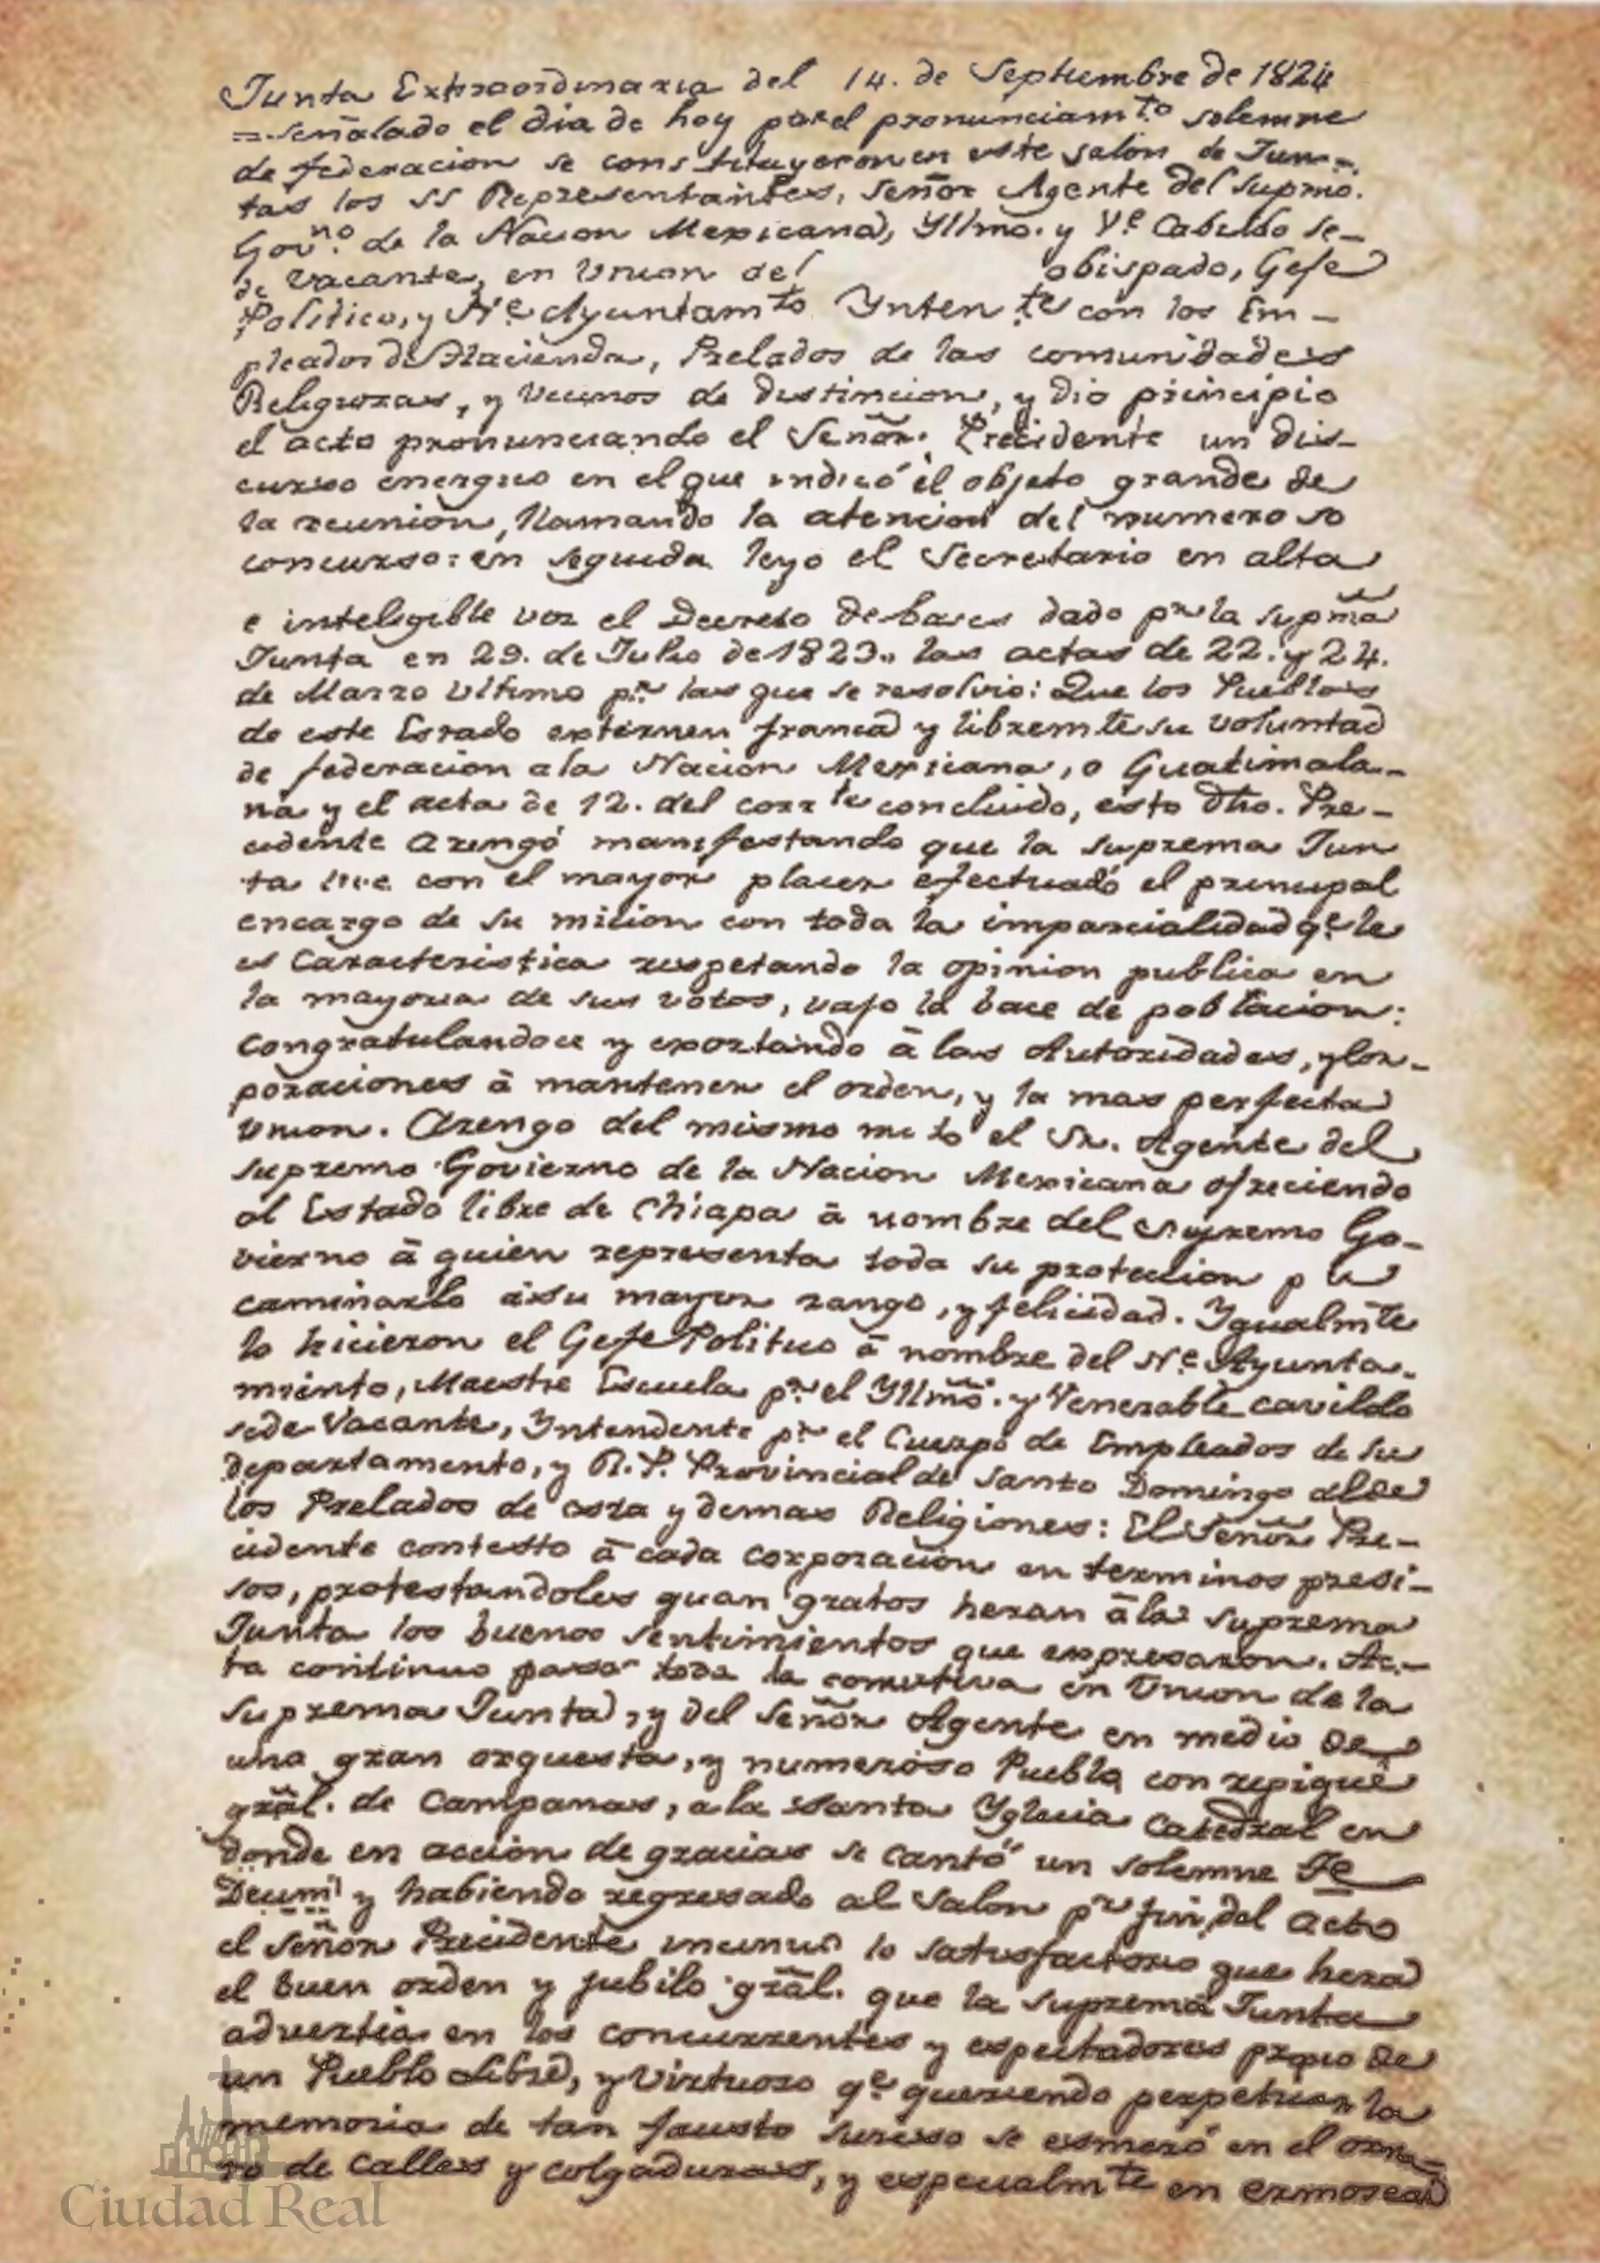 Junta Extraordinaria del 14. de Septiembre de 1824
=. señalado el dia de hoy para el pronunciamto solemne
de federacion se constituyeron en este salon de Jun-
tas los SS Representantes, Señor Agente del Supmo.
Govno. de la Nacion Mexicana, Yllmo. y Ve Cabildo se-
de vacante, en Union del obispado, Gefe
Politico, y Ne Ayuntamto Ynten te con los Em-
pleados de Hacienda, Prelados de las comunidades
Religiozas, y vecinos de distincion, y dio principio
el acto pronunciando el Señor. Precidente un dis-
curso energico en el que indicó el objeto grande de
la reunion, llamando la atencion del numeroso
concurso: en seguida leyo el Secretario en alta
e inteligible voz el Decreto de bases dado pr la supmã
Junta en 29. de Julio de 1823., las actas de 22. y 24.
de Marzo ultimo pr. las que se resolvio: Que los Pueblos
de este Estado externen franca y libremte su voluntad
de federacion a la Nacion Mexicana, o Guatimala-
na y el acta de 12. del corrte concluido, esto dho. Pre-
cidente arengó manifestando que la suprema Jun
ta con el mayor placer efectuado el principal
encargo de su micion con toda la imparcialidad qe le
es Caracteristica respetando la opinion publica en
la mayoria de sus votos, vajo la bace de poblacion:
Congratulandoce y exortando â las Autoridades, y Cor-
poraciones â mantener el orden, y la mas perfecta
Union. Arengo del mismo mo to el Sr. Agente del
supremo Govierno de la Nacion Mexicana ofreciendo
al Estado libre de Chiapa â nombre del Supremo Go-
vierno â quien representa toda su proteccion p
caminarlo â su mayor rango, y felicidad. Ygualmte
lo hicieron el Gefe Politico â nombre del Ne Ayunta-
miento, Maestre Escuela pr el Yllmõ. y Venerable cavildo
sede Vacante, Yntendente pr el Cuerpo de Empleados de su
departamento, y R. P. Provincial de Santo Domingo al de
los Prelados de esta y demas Religiones: El Señor Pre-
cidente contesto â cada corporacion en terminos presi-
sos, protestandoles quan gratos heran â la suprema
Junta los buenos sentimientos que expresaron. Ac-
to continuo paso toda la comitiva en Union de la
suprema Junta, y del Señor Agente en medio de
una gran orquesta, y numeroso Pueblo con repique
grãl. de Campanas, a la Santa Yglecia Catedral en
donde en accion de gracias se cantó un solemne Te
Deum y habiendo regresado al Salon pr fin del acto
el Señor Precidente incinuo lo satisfactorio que hera
el buen orden y jubilo grãl. que la suprema Junta
advertia en los concurrentes y espectadores propio de
un Pueblo Libre, y Virtuozo qe queriendo perpetuar la
memoria de tan fausto suceso se esmeró en el orna-
to de Calles y colgaduras, y especialmte en ermosear
Ciudad Real